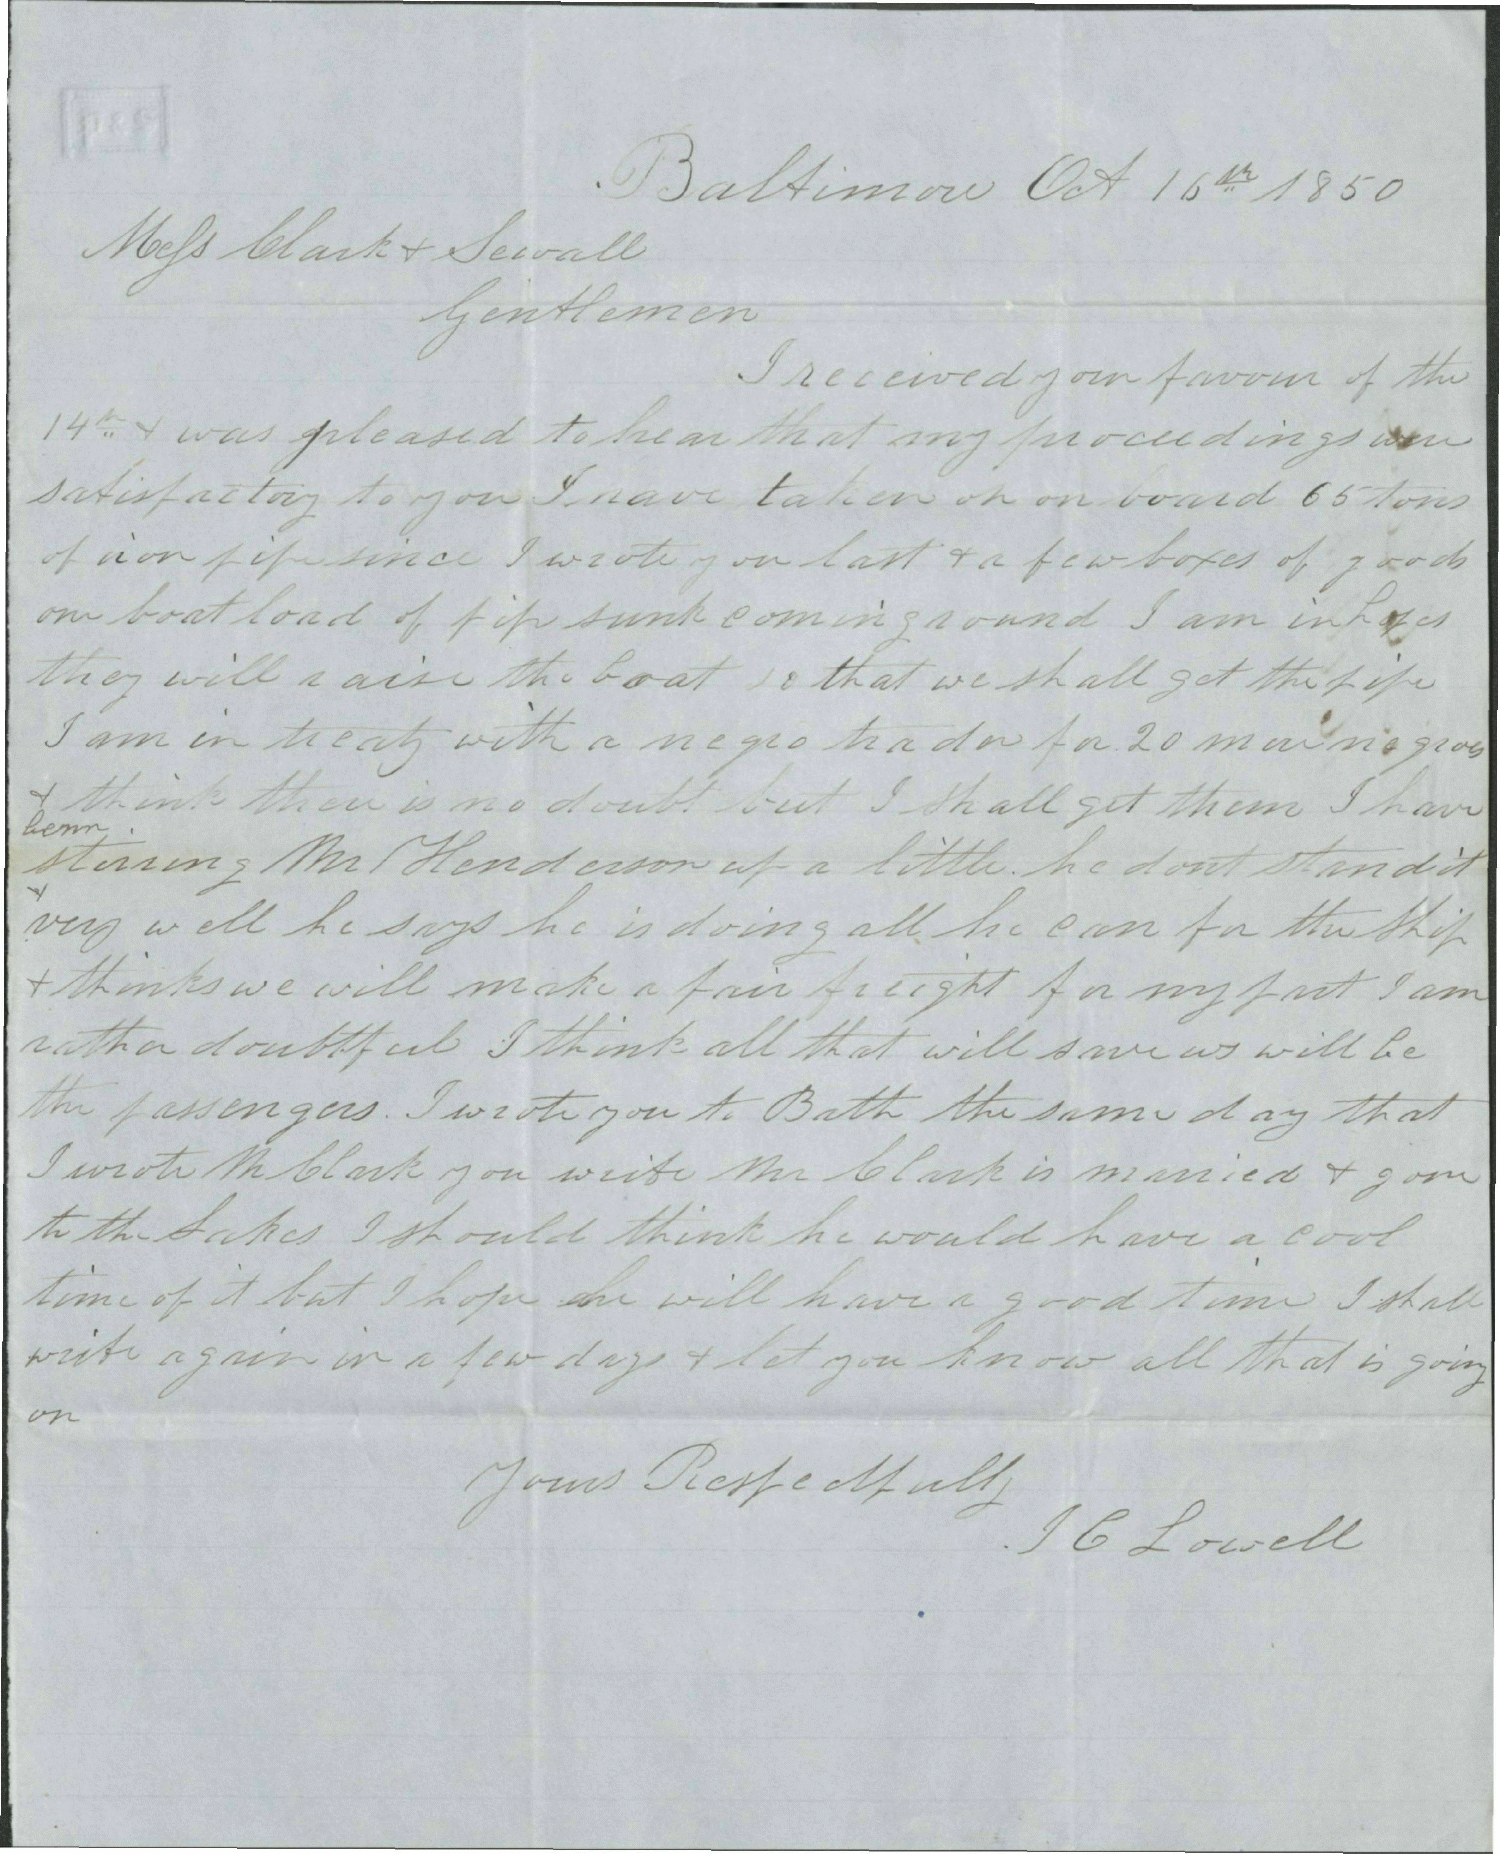 Baltimore Oct 16th 1850
Mess Clark & Sewall
Gentlemen
I received your favour of the
14th & was pleased to hear that my proceedings were
satisfactory to you I have taken on on board 65 tons
of iron pipe since I wrote you last & a few boxes of goods
one boat load of pip sunk coming round I am in hopes
they will raise the boat so that we shall get the pipe
I am in treaty with a negro trador for 20 more negroes
& think there is no doubt but I shall get them I have
benn
stirring Mr Henderson up a little. he dont stand it
&
very well he says he is doing all he can for the ship
& thinks we will make a fair freight for my part I am
rather doubtful I think all that will save us will be
the passengers. I wrote you to Bath the same day that
I wrote Mr Clark you write Mr Clark is married & gone
to the Lakes I should think he would have a cool
time of it but I hope he will have a good time I shall
write again in a few days & let you know all that is going
on
Yours Respectfully
J C Lowell